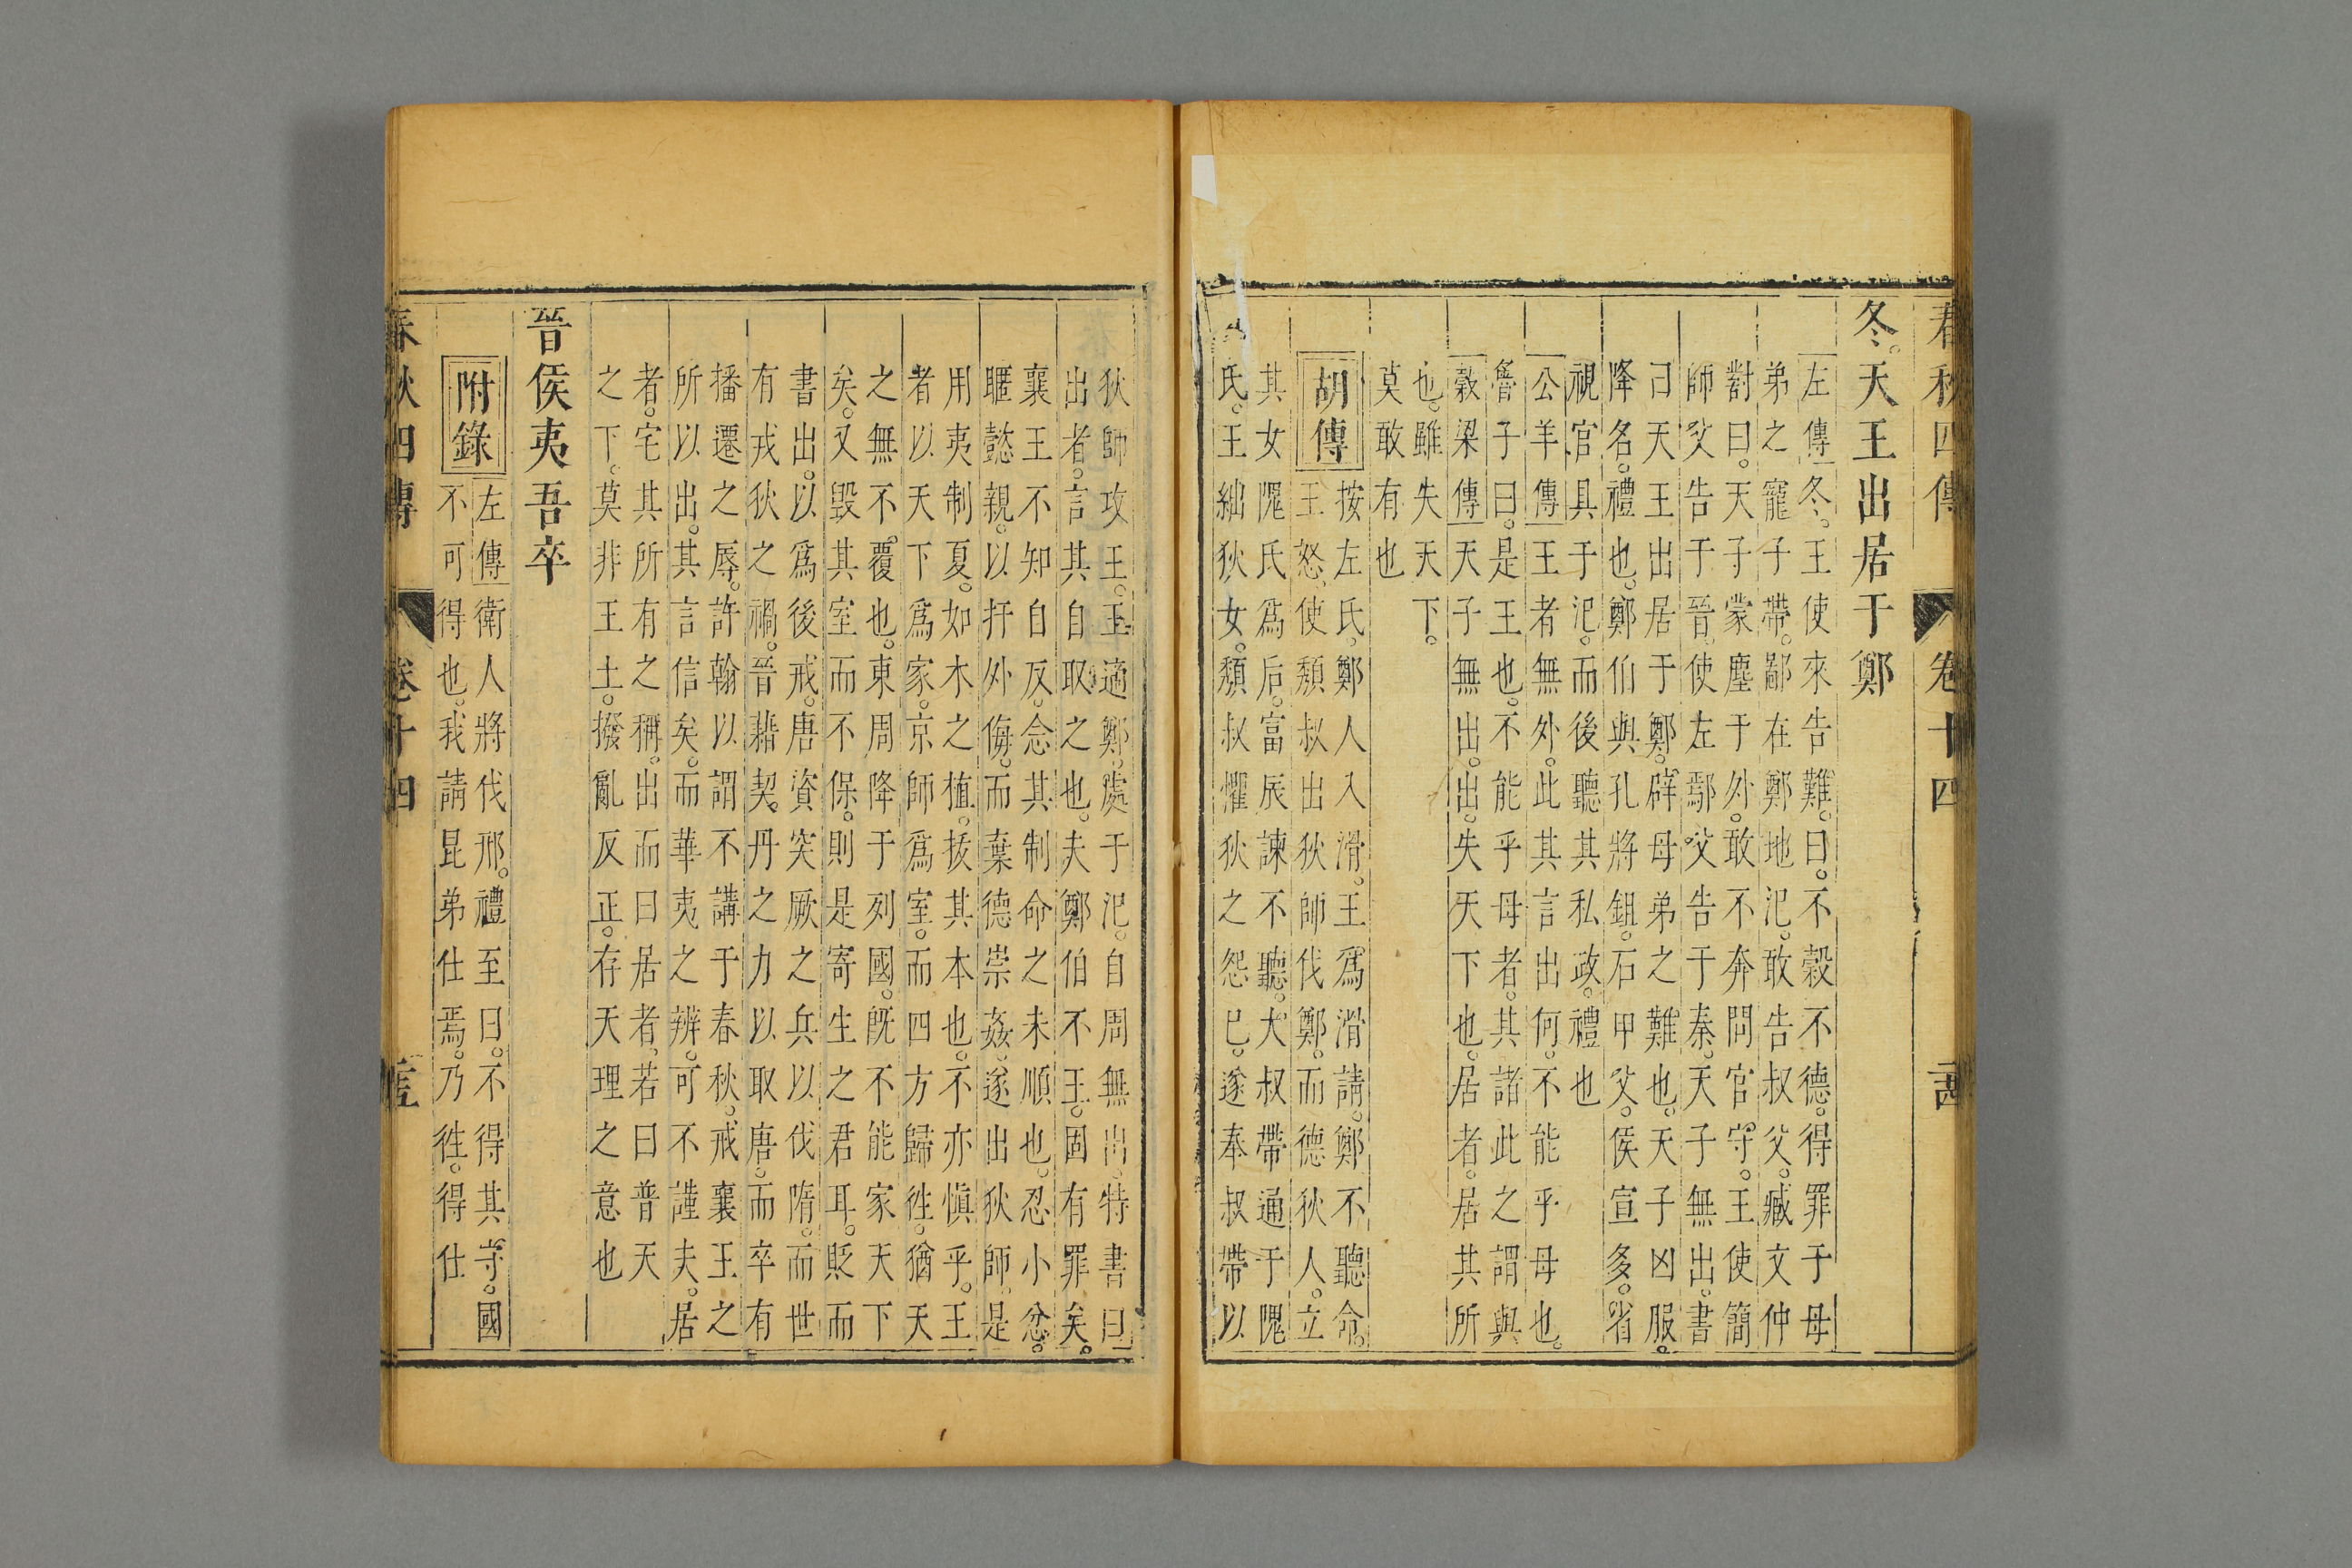 春秋四傳 卷十四
冬。天王出居于鄭
左傳冬。王使來告難。曰。不穀不德。得罪于母
弟之寵子帶。鄙在鄭地氾。敢告叔父。臧文仲
對曰。天子蒙塵于外。敢不奔問官守。王使簡
師父告于晉。使左鄢父告于秦。天子無出。書
曰天王出居于鄭。辟母弟之難也。天子凶服。
降名。禮也。鄭伯與孔將鉏。石甲父。侯宣多。省
視官具于氾。而後聽其私政。禮也
公羊傳王者無外。此其言出何。不能乎母也。
魯子曰。是王也。不能乎母者。其諸此之謂與
穀梁傳天子無出。出。失天下也。居者。居其所
也。雖失天下。
莫敢有也
胡傳
按左氏。鄭人入滑。王爲滑請。鄭不聽命。
王怒。使頹叔出狄師伐鄭。而德狄人。立
其女隗氏爲后。富辰諫不聽。大叔帶通于隗
氏。王絀狄女。頹叔懼狄之怨已。遂奉叔帶以
狄師攻王。王適鄭。處于氾。自周無出。特書曰
出者。言其自取之也。夫鄭伯不王。固有罪矣。
襄王不知自反。念其制命之未順也。忍小忿。
暱懿親。以扞外侮。而棄德崇姦。遂出狄師。是
用夷制夏。如木之植。拔其本也。不亦愼乎。王
者以天下爲家。京師爲室。而四方歸徃。猶天
之無不覆也。東周降于列國。旣不能家天下
矣。又毀其室而不保。則是寄生之君耳。貶而
書出。以爲後戒。唐資突厥之兵以伐隋。而世
有戎狄之禍。晉藉契丹之力以取唐。而卒有
播遷之辱。許翰以謂不講于春秋。戒襄王之
所以出。其言信矣。而華夷之辨。可不謹夫。居
者。宅其所有之稱。出而曰居者。若曰普天
之下。莫非王土。撥亂反正。存天理之意也
晉侯夷吾卒
附錄
左傳衛人將伐邢。禮至曰。不得其守。國
不可得也。我請昆弟仕焉。乃徃。得仕
春秋四傳 卷十四